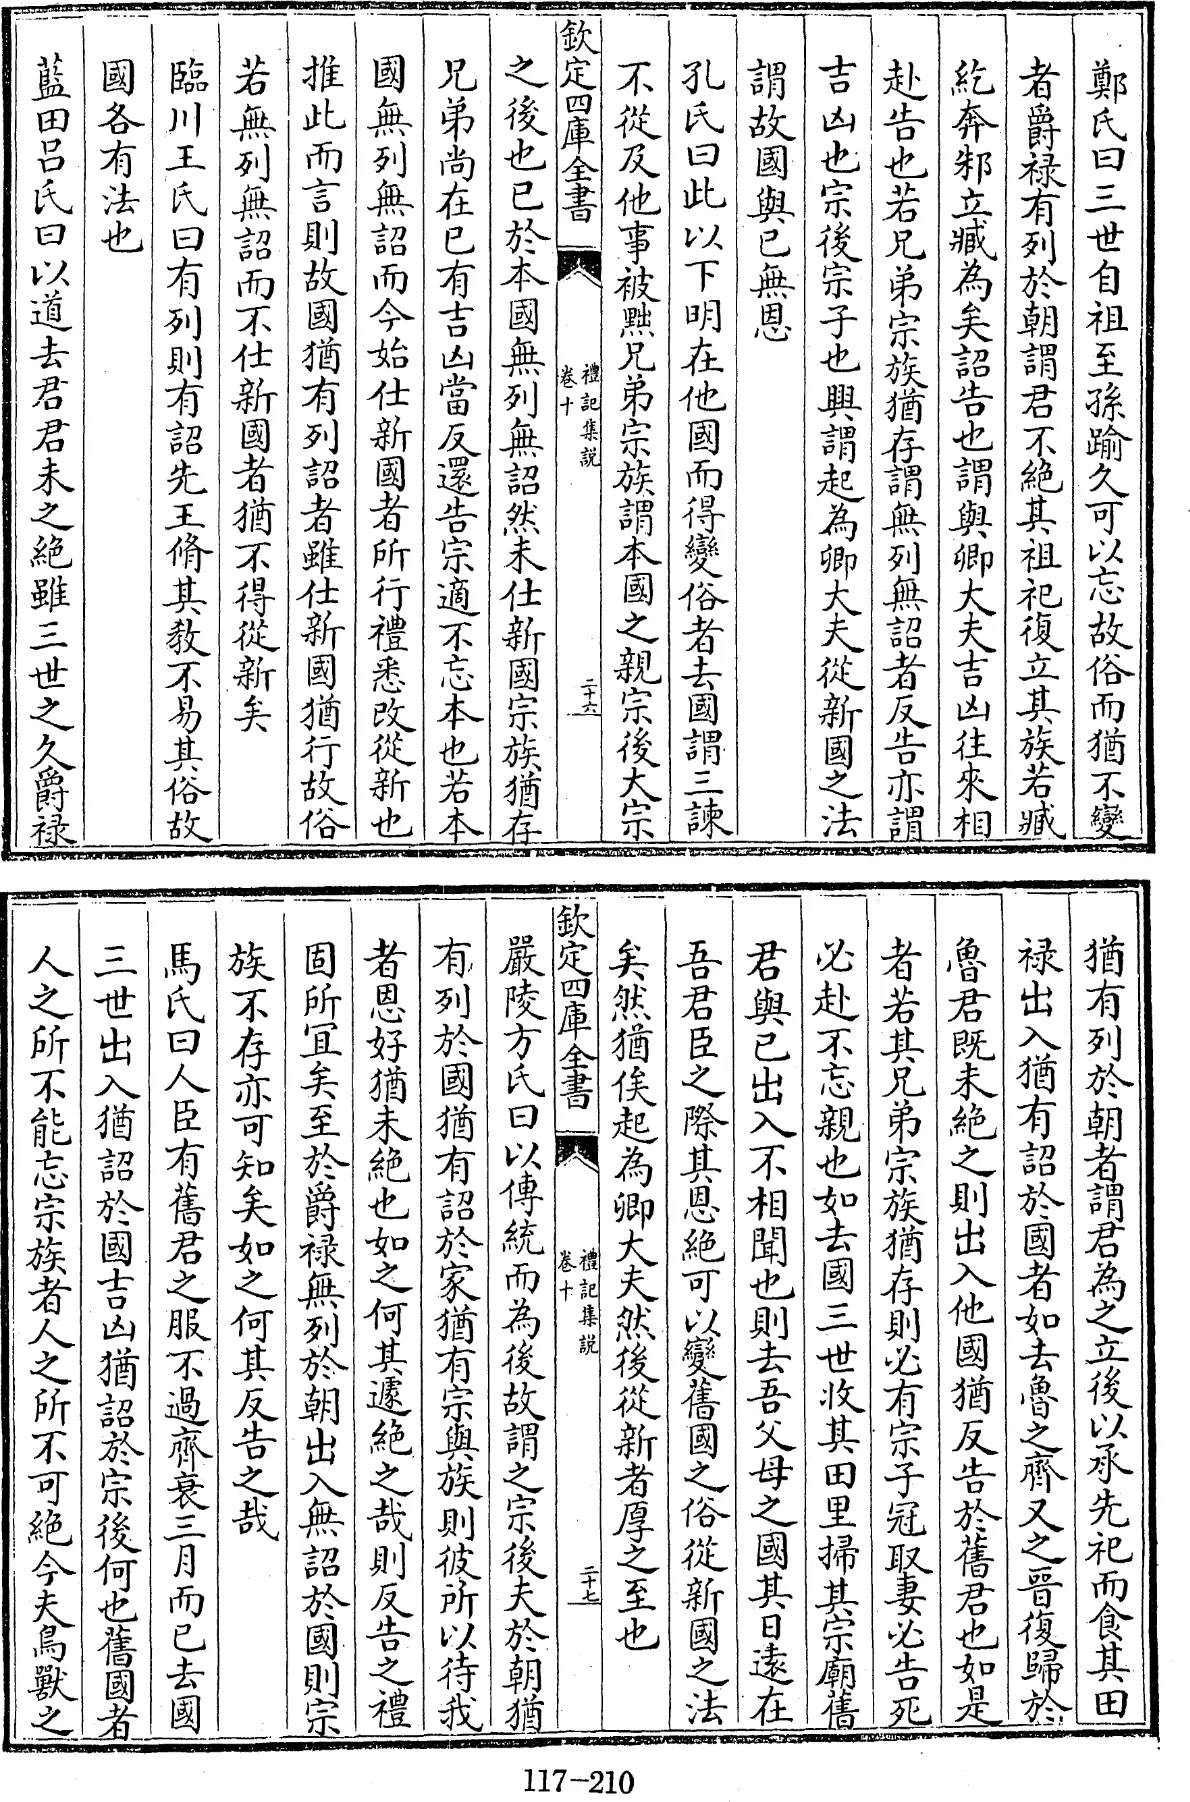 鄭氏曰三世自祖至孫踰久可以忘故俗而猶不變
者爵禄有列於朝謂君不絶其祖祀復立其族若臧
紇奔邾立臧為矣詔告也謂與卿大夫吉凶往來相
赴告也若兄弟宗族猶存謂無列無詔者反告亦謂
吉凶也宗後宗子也興謂起為卿大夫從新國之法
謂故國與已無恩
孔氏曰此以下明在他國而得變俗者去國謂三諫
不從及他事被黜兄弟宗族謂本國之親宗後大宗
欽定四庫全書
禮記集説
卷十
二十六
之後也已於本國無列無詔然未仕新國宗族猶存
兄弟尚在已有吉凶當反還告宗適不忘本也若本
國無列無詔而今始仕新國者所行禮悉改從新也
推此而言則故國猶有列詔者雖仕新國猶行故俗
若無列無詔而不仕新國者猶不得從新矣
臨川王氏曰有列則有詔先王脩其教不易其俗故
國各有法也
藍田吕氏曰以道去君君未之絶雖三世之久爵禄
猶有列於朝者謂君為之立後以承先祀而食其田
禄出入猶有詔於國者如去魯之齊又之晉復歸於
魯君既未絶之則出入他國猶反告於舊君也如是
者若其兄弟宗族猶存則必有宗子冠取妻必告死
必赴不忘親也如去國三世收其田里掃其宗廟舊
君與已出入不相聞也則去吾父母之國其日逺在
吾君臣之際其恩絶可以變舊國之俗從新國之法
矣然猶俟起為卿大夫然後從新者厚之至也
欽定四庫全書
禮記集説
卷十
二十七
嚴陵方氏曰以傳統而為後故謂之宗後夫於朝猶
有列於國猶有詔於家猶有宗與族則彼所以待我
者恩好猶未絶也如之何其遽絶之哉則反告之禮
固所宜矣至於爵禄無列於朝出入無詔於國則宗
族不存亦可知矣如之何其反告之哉
馬氏曰人臣有舊君之服不過齊衰三月而已去國
三世出入猶詔於國吉凶猶詔於宗後何也舊國者
人之所不能忘宗族者人之所不可絶今夫鳥獸之
117-210